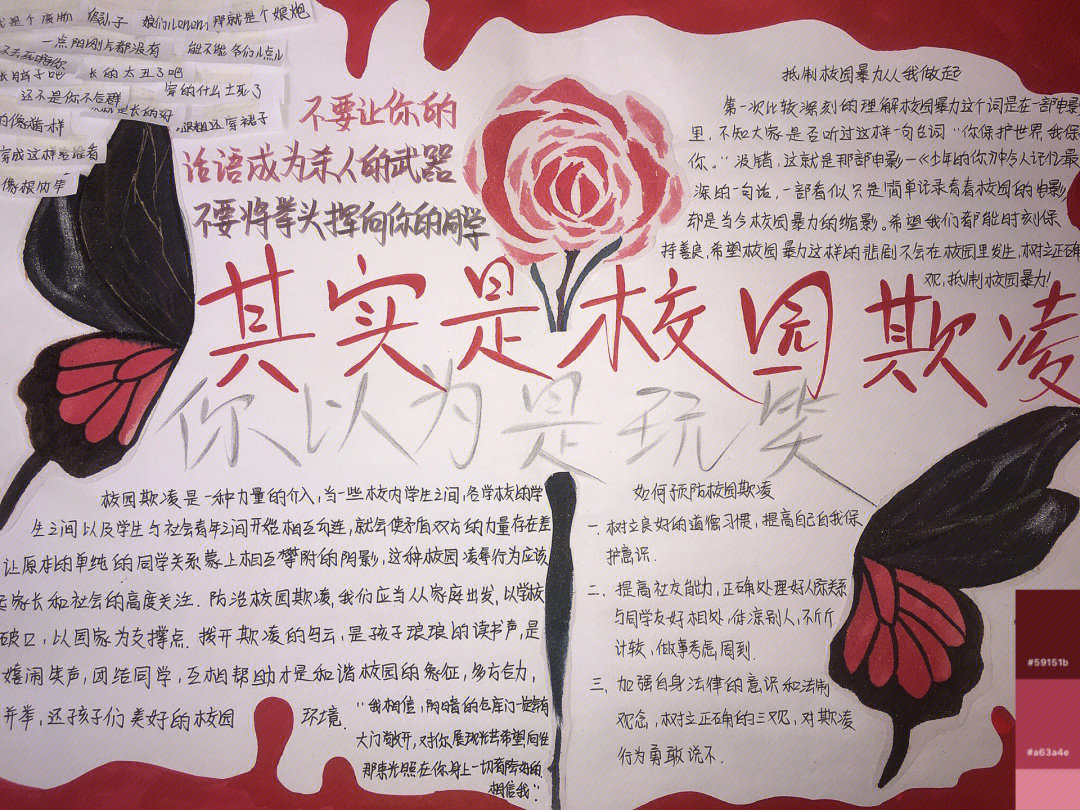 是个废物
娘们儿唧唧，那就是个娘炮
一点阳刚气都没有
能不能爷们儿点儿
长的太丑了吧
还不是你不合群
穿的什么土死了
还穿裙子
不要让你的
话语成为杀人的武器
不要将拳头挥向你的同学
抵制校园暴力从我做起
第一次比较深刻的理解校园暴力这个词是在一部电影
里，不知大家是否听过这样一句台词“你保护世界，我保
你。”没错，这就是那部电影－《少年的你》中令人记忆最
深的一句话，一部看似只是简单记录青春校园的电影，
却是当今校园暴力的缩影。希望我们都能时刻保
持善良，希望校园暴力这样的悲剧不会在校园里发生，树立正确
观，抵制校园暴力！
其实是校园欺凌
你以为是玩笑
校园欺凌是一种力量的介入，当一些校内学生之间，各学校的学
生之间以及学生与社会青年之间开始相互勾连，就会使矛盾双方的力量存在差
让原本的单纯的同学关系蒙上相互攀附的阴影，这种校园凌辱行为应该
家长和社会的高度关注．防治校园欺凌，我们应当从家庭出发，以学校
破口，以国家为支撑点．拨开欺凌的乌云，是孩子琅琅的读书声，是
嬉闹笑声，团结同学，互相帮助才是和谐校园的象征，多方合力，
并举，还孩子们美好的校园环境．
“我相信，阴暗的仓库门一定会有
大门敞开，对你展现光芒希望向往
那束光照在你身上一切都会好的
相信我”
如何预防校园欺凌
一．树立良好的道德习惯，提高自己自我保
护意识．
二、提高社交能力，正确处理好人际关系
与同学友好相处，体凉别人，不斤斤
计较，做事考虑周到．
三、加强自身法律的意识和法制
观念，树立正确的三观，对欺凌
行为勇敢说不．
#59151b
#a63a4e